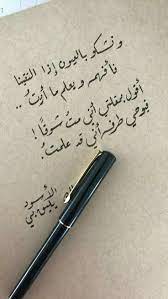 ونشكو بالعيون إذا التقينا
فأفهمه ويعلم ما أردتُ ..
أقول بمقلتي أني متُّ شوقاً !
فيوحي طرفه أني قد علمتُ .
الأسود
يليق بي